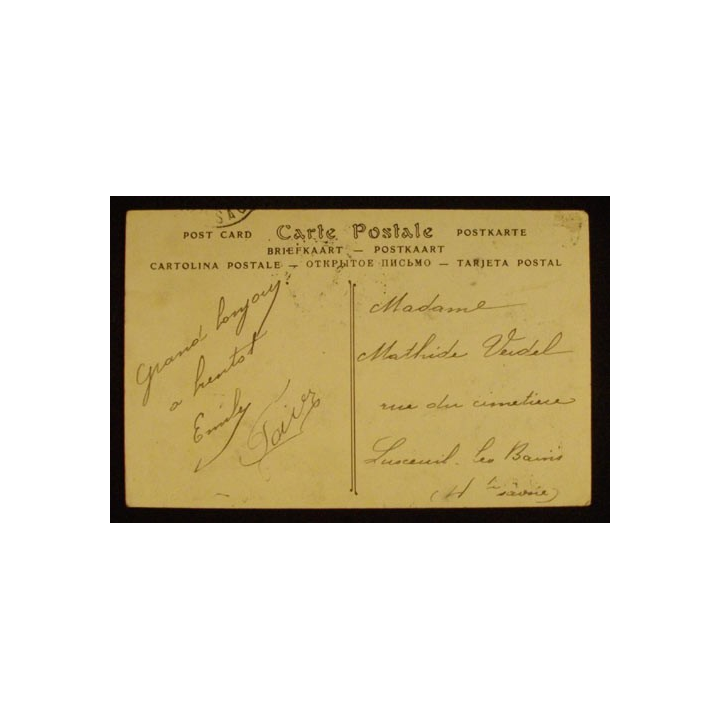 SAG
POST CARD Carte Postale POSTKARTE
BRIEFKAART — POSTKAART
CARTOLINA POSTALE — ОТКРЫТОЕ ПИСЬМО — TARJETA POSTAL
Grand bonjour
a bientot
Emily
Madame
Mathide Verdel
rue du cimetiere
Luxeuil-les Bains
(Hte Savoie)